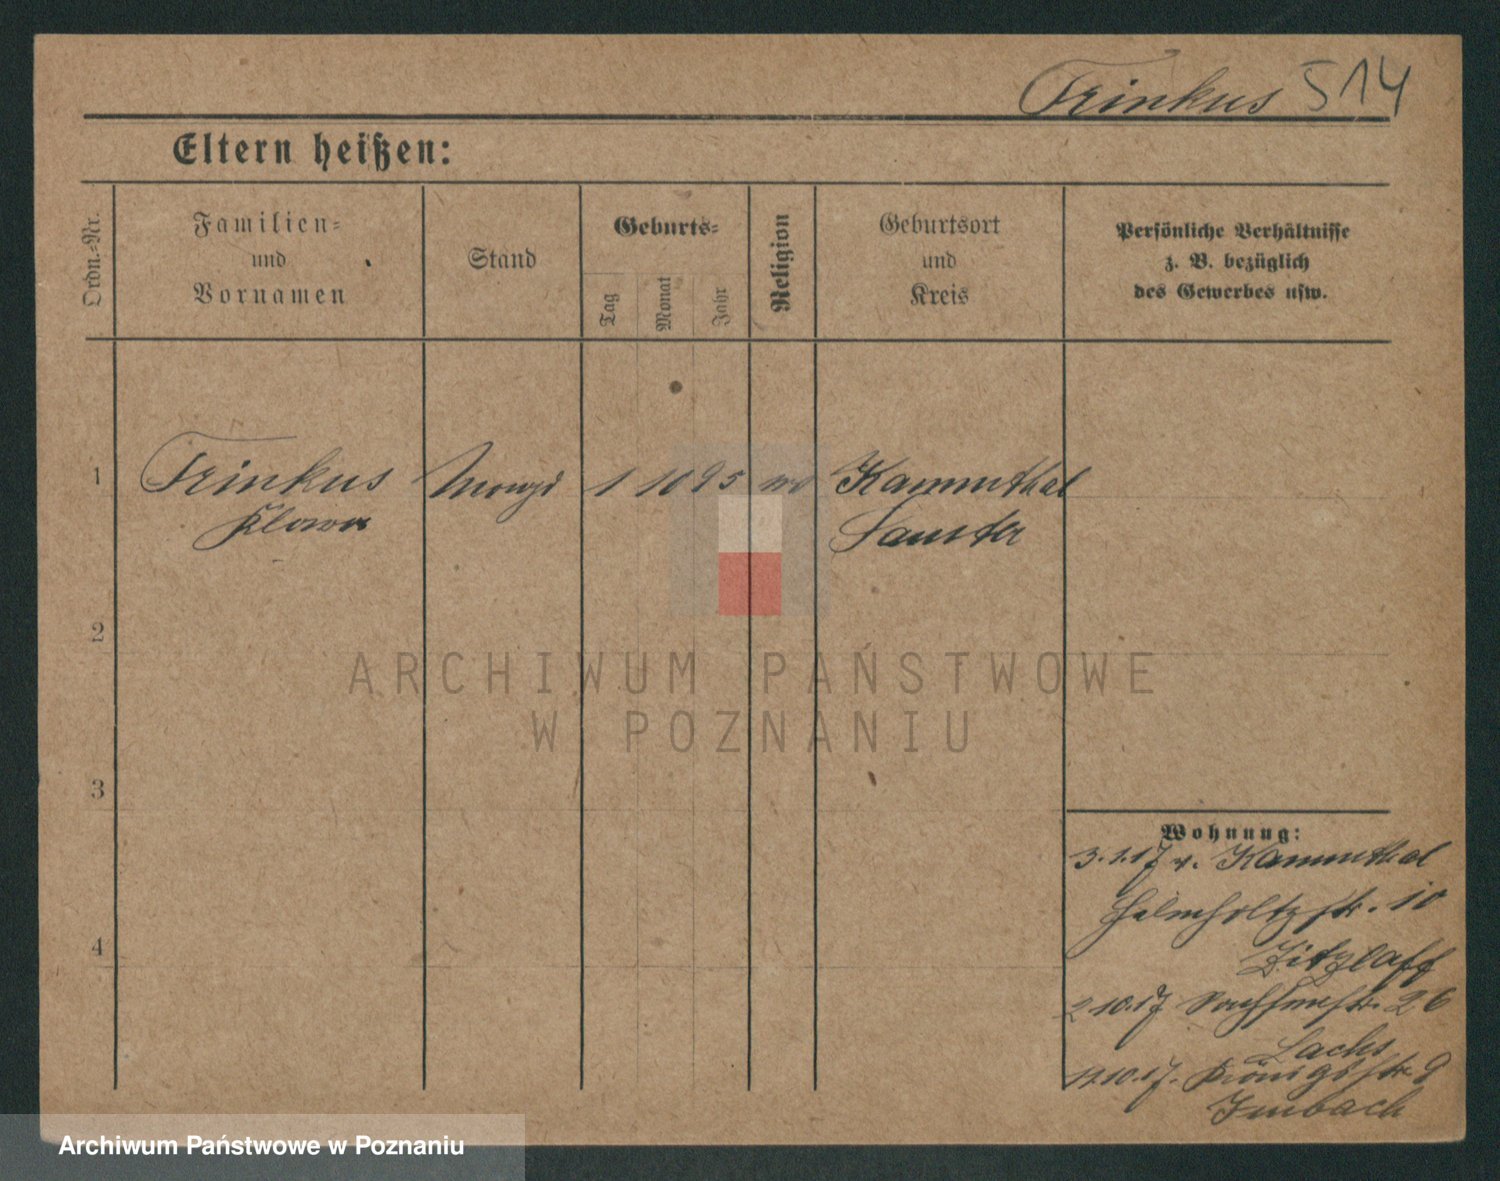 Trinkus 514
Eltern heißen:
Ordn.-Nr.
Familien-
und
Vornamen
Stand
Geburts-
Tag
Monat
Jahr
Religion
Geburtsort
und
Kreis
Persönliche Verhältnisse
z. B. bezüglich
des Gewerbes usw.
1
Trinkus
1 10 95
Kammthal
Samter
2
ARCHIWUM PAŃSTWOWE
W POZNANIU
3
4
Wohnung:
3.1.17 v. Kammthal
Helmholtzstr. 10
Zitzlaff
2 10.17 26
Lachs
10.17. Königstr. 9
Imbach
Archiwum Państwowe w Poznaniu